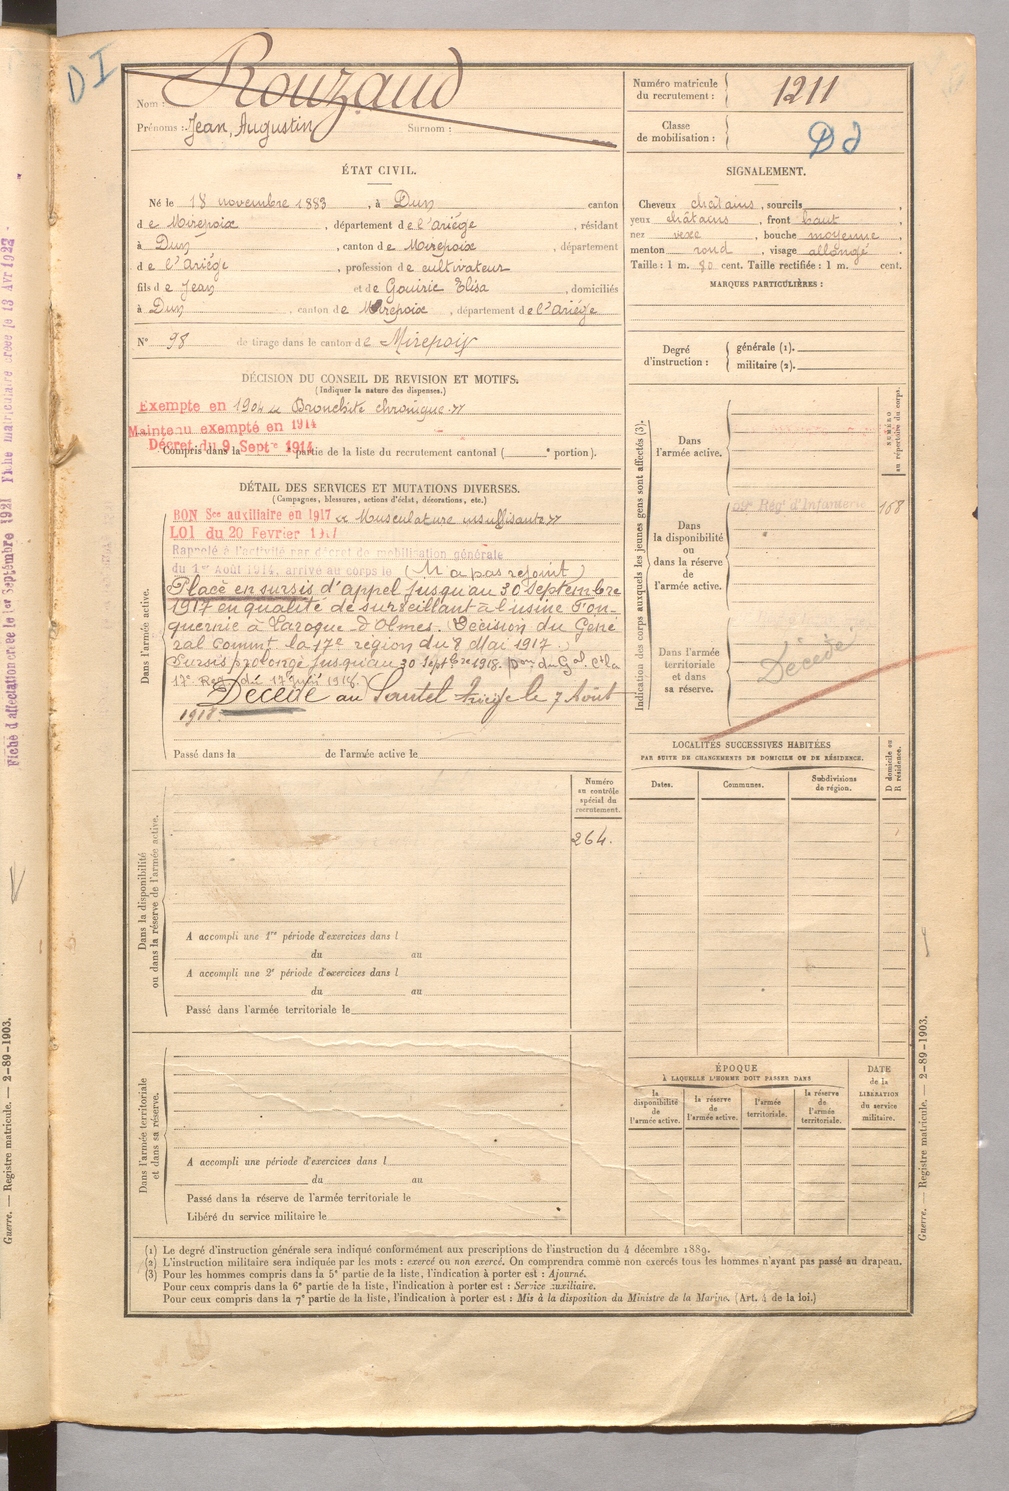 D I
Nom : Rouzaud
Prénoms : Jean, Augustin Surnom :
Numéro matricule du recrutement : 1211
Classe de mobilisation :
ÉTAT CIVIL.
Né le 18 novembre 1883, à Dun canton
de Mirepoix, département de l'Ariége, résidant
à Dun, canton de Mirepoix, département
de l'Ariége, profession de cultivateur
fils de Jean et de Gouiric Elisa, domiciliés
à Dun, canton de Mirepoix, département de l'Ariége
N° 98 de tirage dans le canton de Mirepoix
SIGNALEMENT.
Cheveux châtains, sourcils ,
yeux châtains, front haut ,
nez vexe, bouche moyenne ,
menton rond, visage allongé .
Taille : 1 m. 80 cent. Taille rectifiée : 1 m. cent.
MARQUES PARTICULIÈRES :
Degré d'instruction :
générale (1).
militaire (2).
DÉCISION DU CONSEIL DE REVISION ET MOTIFS.
(Indiquer la nature des dispenses.)
Exempté en 1904 « Bronchite chronique »
Maintenu exempté en 1914
Décret du 9 Septre 1914
Compris dans la partie de la liste du recrutement cantonal ( e portion).
DÉTAIL DES SERVICES ET MUTATIONS DIVERSES.
(Campagnes, blessures, actions d'éclat, décorations, etc.)
Dans l'armée active.
BON Sce auxiliaire en 1917 « Musculature insuffisante »
LOI du 20 Fevrier 1917
Rappelé à l'activité par décret de mobilisation générale
du 1er Août 1914, arrivé au corps le (N'a pas rejoint)
Placé en sursis d'appel jusqu'au 30 septembre
1917 en qualité de surveillant à l'usine Fon-
quernie à Laroque d'Olmes. Décision du Géné
ral commt la 17e région du 8 Mai 1917.
Sursis prolongé jusqu'au 30 Septbre 1918. Don du Gal Ct la
17e Reg. du 17 Juin 1918.
Décédé au Sautel Ariège le 7 Août
1918.
Passé dans la de l'armée active le
Indication des corps auxquels les jeunes gens sont affectés (3).
NUMÉRO au répertoire du corps.
Dans l'armée active.
Dans la disponibilité ou dans la réserve de l'armée active.
Rég' d'Infanterie 168
Dans l'armée territoriale et dans sa réserve.
Décédé
LOCALITÉS SUCCESSIVES HABITÉES
PAR SUITE DE CHANGEMENTS DE DOMICILE OU DE RÉSIDENCE.
Dates.
Communes.
Subdivisions de région.
D domicile ou R résidence.
Dans la disponibilité ou dans la réserve de l'armée active.
Numéro au contrôle spécial du recrutement.
264.
A accompli une 1re période d'exercices dans l
du au
A accompli une 2e période d'exercices dans l
du au
Passé dans l'armée territoriale le
Dans l'armée territoriale et dans sa réserve.
A accompli une période d'exercices dans l
du au
Passé dans la réserve de l'armée territoriale le
Libéré du service militaire le
ÉPOQUE
À LAQUELLE L'HOMME DOIT PASSER DANS
la disponibilité de l'armée active.
la réserve de l'armée active.
l'armée territoriale.
la réserve de l'armée territoriale.
DATE de la LIBÉRATION du service militaire.
(1) Le degré d'instruction générale sera indiqué conformément aux prescriptions de l'instruction du 4 décembre 1889.
(2) L'instruction militaire sera indiquée par les mots : exercé ou non exercé. On comprendra comme non exercés tous les hommes n'ayant pas passé au drapeau.
(3) Pour les hommes compris dans la 5e partie de la liste, l'indication à porter est : Ajourné.
Pour ceux compris dans la 6e partie de la liste, l'indication à porter est : Service auxiliaire.
Pour ceux compris dans la 7e partie de la liste, l'indication à porter est : Mis à la disposition du Ministre de la Marine. (Art. 4 de la loi.)
Guerre. — Registre matricule. — 2-89-1903.
Guerre. — Registre matricule. — 2-89-1903.
Fiche d'affectation créée le 1er Septembre 1921 Fiche matriculaire créée le 13 Avr 1922